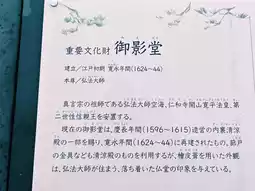 重要文化財 御影堂
建立／江戸初期 寛永年間（1624～44）
本尊／弘法大師
真言宗の祖師である弘法大師空海、仁和寺開山寛平法皇、第
二世性信親王を安置する。
現在の御影堂は、慶長年間（1596～1615）造営の内裏清涼
殿の一部を賜り、寛永年間（1624～44）に再建されたもの。蔀戸
の金具なども清涼殿のものを利用するが、檜皮葺を用いた外観
は、弘法大師が住まう、落ち着いた仏堂の印象を与えている。